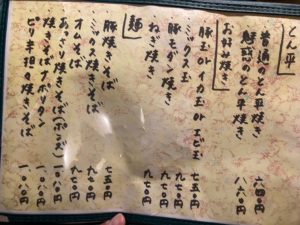 とん平
普通のとん平焼き 六四〇円
魅惑のとん平焼き 八六〇円
お好み焼き
豚玉orイカ玉orエビ玉 七五〇円
ミックス玉 九七〇円
豚モダン焼き 九七〇円
ねぎ焼き 九七〇円
麺
豚焼きそば 七五〇円
ミックス焼きそば 九七〇円
オムそば 九七〇円
あっさり焼きそば(ポンズ) 一〇八〇円
焼きそばナポリタン 一〇八〇円
ピリ辛担々焼きそば 一〇八〇円